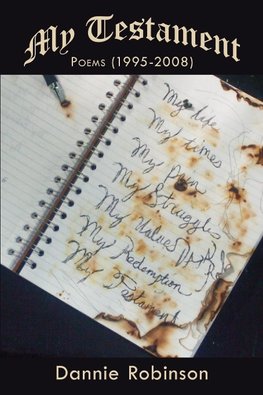 My Testament
Poems (1995-2008)
My life
My times
My Pain
My Struggles
My Values
My Redemption
My Testament
Dannie Robinson